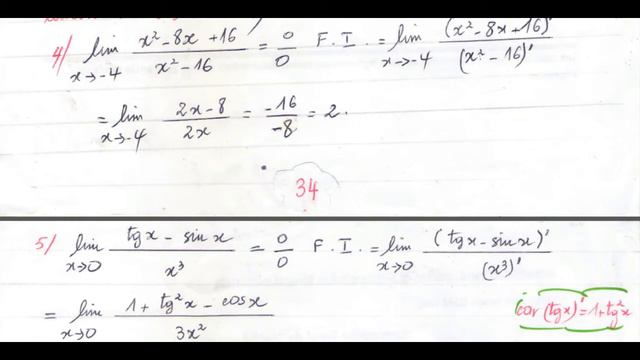 4/ lim x→-4 (x² - 8x + 16)/(x² - 16) = 0/0 F.I. = lim x→-4 (x² - 8x + 16)'/(x² - 16)'
= lim x→-4 (2x - 8)/(2x) = -16/-8 = 2.
34
5/ lim x→0 (tgx - sin x)/x³ = 0/0 F.I. = lim x→0 (tgx - sin x)'/(x³)'
= lim x→0 (1 + tg²x - cosx)/(3x²)
car (tgx)' = 1 + tg²x